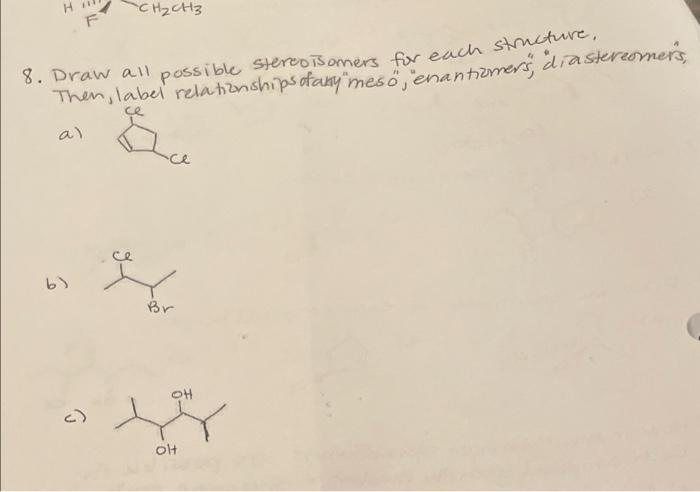 H F CH2CH3
8. Draw all possible stereoisomers for each structure.
Then, label relationships of any "meso", "enantiomers", "diastereomers,
a)
Cl
Cl
b)
Cl
Br
c)
OH
OH